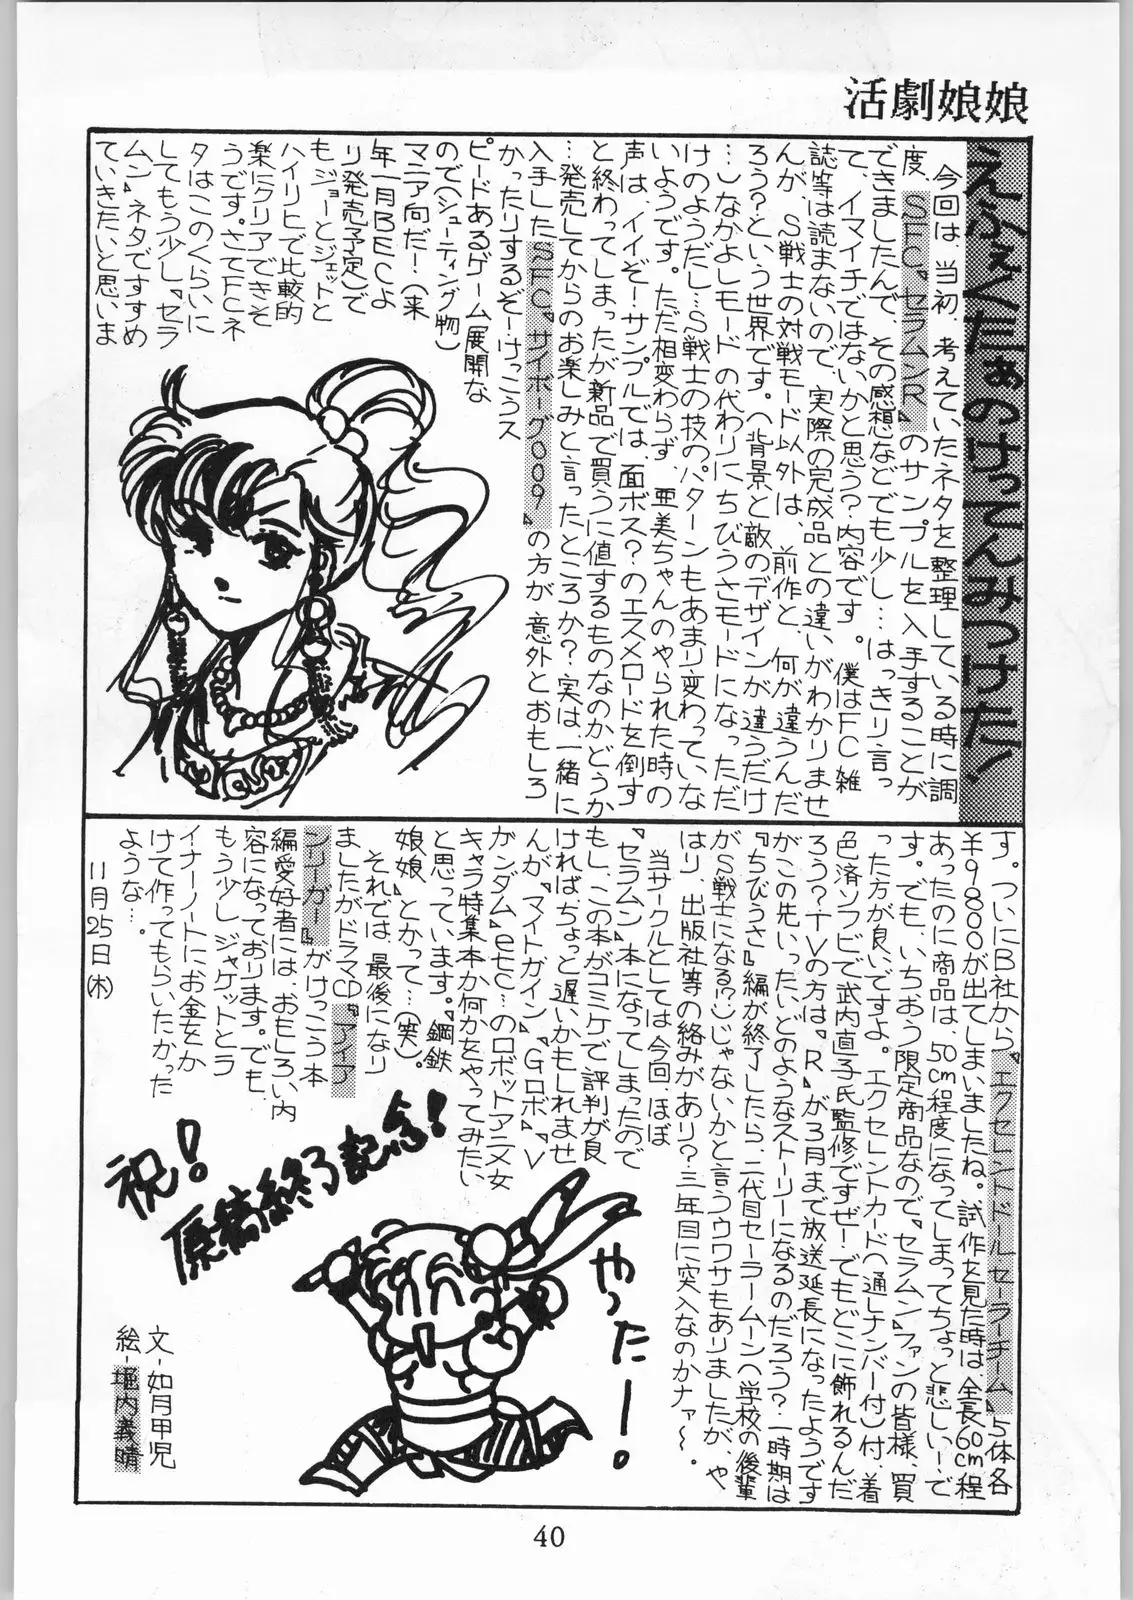 活劇娘娘
えふぇくたぁのけってんみつけた!
今回は、当初、考えていたネタを整理している時に調
度、SFC『セラムンR』のサンプルを入手することが
できましたんで、その感想などでも少し…はっきり言っ
て、イマイチではないかと思う?内容です。僕はFC雑
誌等は読まないので、実際の完成品との違いがわかりませ
んが、S戦士の対戦モード以外は、前作と、何が違うんだ
ろう?という世界です。(背景と敵のデザインが違うだけ
…)なかよしモードの代わりにちびうさモードになっただ
けのようだし…S戦士の技のパターンもあまり変わっていな
いようです。ただ相変わらず、亜美ちゃんのやられた時の
声は、イイぞ!サンプルでは、面ボス?のエスメロードを倒す
と終わってしまったが新品で買うに値するものなのかどうか
…発売してからのお楽しみと言ったところか?実は一緒に
入手したSFC『サイボーグ009』の方が意外とおもしろ
かったりするぞーけっこうス
ピードあるゲーム展開な
ので(シューティング物)
マニア向だー!(来
年一月BECよ
り発売予定)で
もジョーとジェットと
ハイリヒで比較的
楽にクリアできそ
うです。さてFCネ
タはこのくらいに
してもう少し『セラ
ムン』ネタですすめ
ていきたいと思いま
す。ついにB社から『エクセレントドールセーラーチーム』5体各
¥9800が出てしまいましたね。試作を見た時は、全長60cm程
あったのに商品は、50cm程度になってしまってちょっと悲しいーで
す。でも、いちおう限定商品なので、セラムンファンの皆様、買
った方が良いですよ。エクセレントカード(通しナンバー付)付、着
色済ソフビで武内直子氏監修ですぜーでもどこに飾れるんだ
ろう?TVの方は『R』が3月まで放送延長になったようです
がこの先いったいどのようなストーリーになるのだろう?一時期は
『ちびうさ』編が終了したら、二代目セーラームーン(学校の後輩
がS戦士になる?)じゃないかと言うウワサもありましたが、や
はり、出版社等の絡みがあり?三年目に突入なのかナァ〜。
当サークルとしては今回、ほぼ
『セラムン』本になってしまったので
もし、この本がコミケで評判が良
ければ、ちょっと遅いかもしれませ
んが『マイトガイン』『Gロボ』『V
ガンダム』etc…のロボットアニメ女
キャラ特集本か何かをやってみたい
と思っています。『鋼鉄
娘娘』とかって…(笑)。
それでは、最後になり
ましたがドラマCD『アイア
ンリーガー』がけっこう本
編愛好者には、おもしろい内
容になっております。でも
もう少しジャケットとラ
イナーノートにお金をか
けて作ってもらいたかった
ような…。
11月25日(木)
祝!
原稿終了記念!
やったー!
文-如月甲児
絵-堀内義晴
40